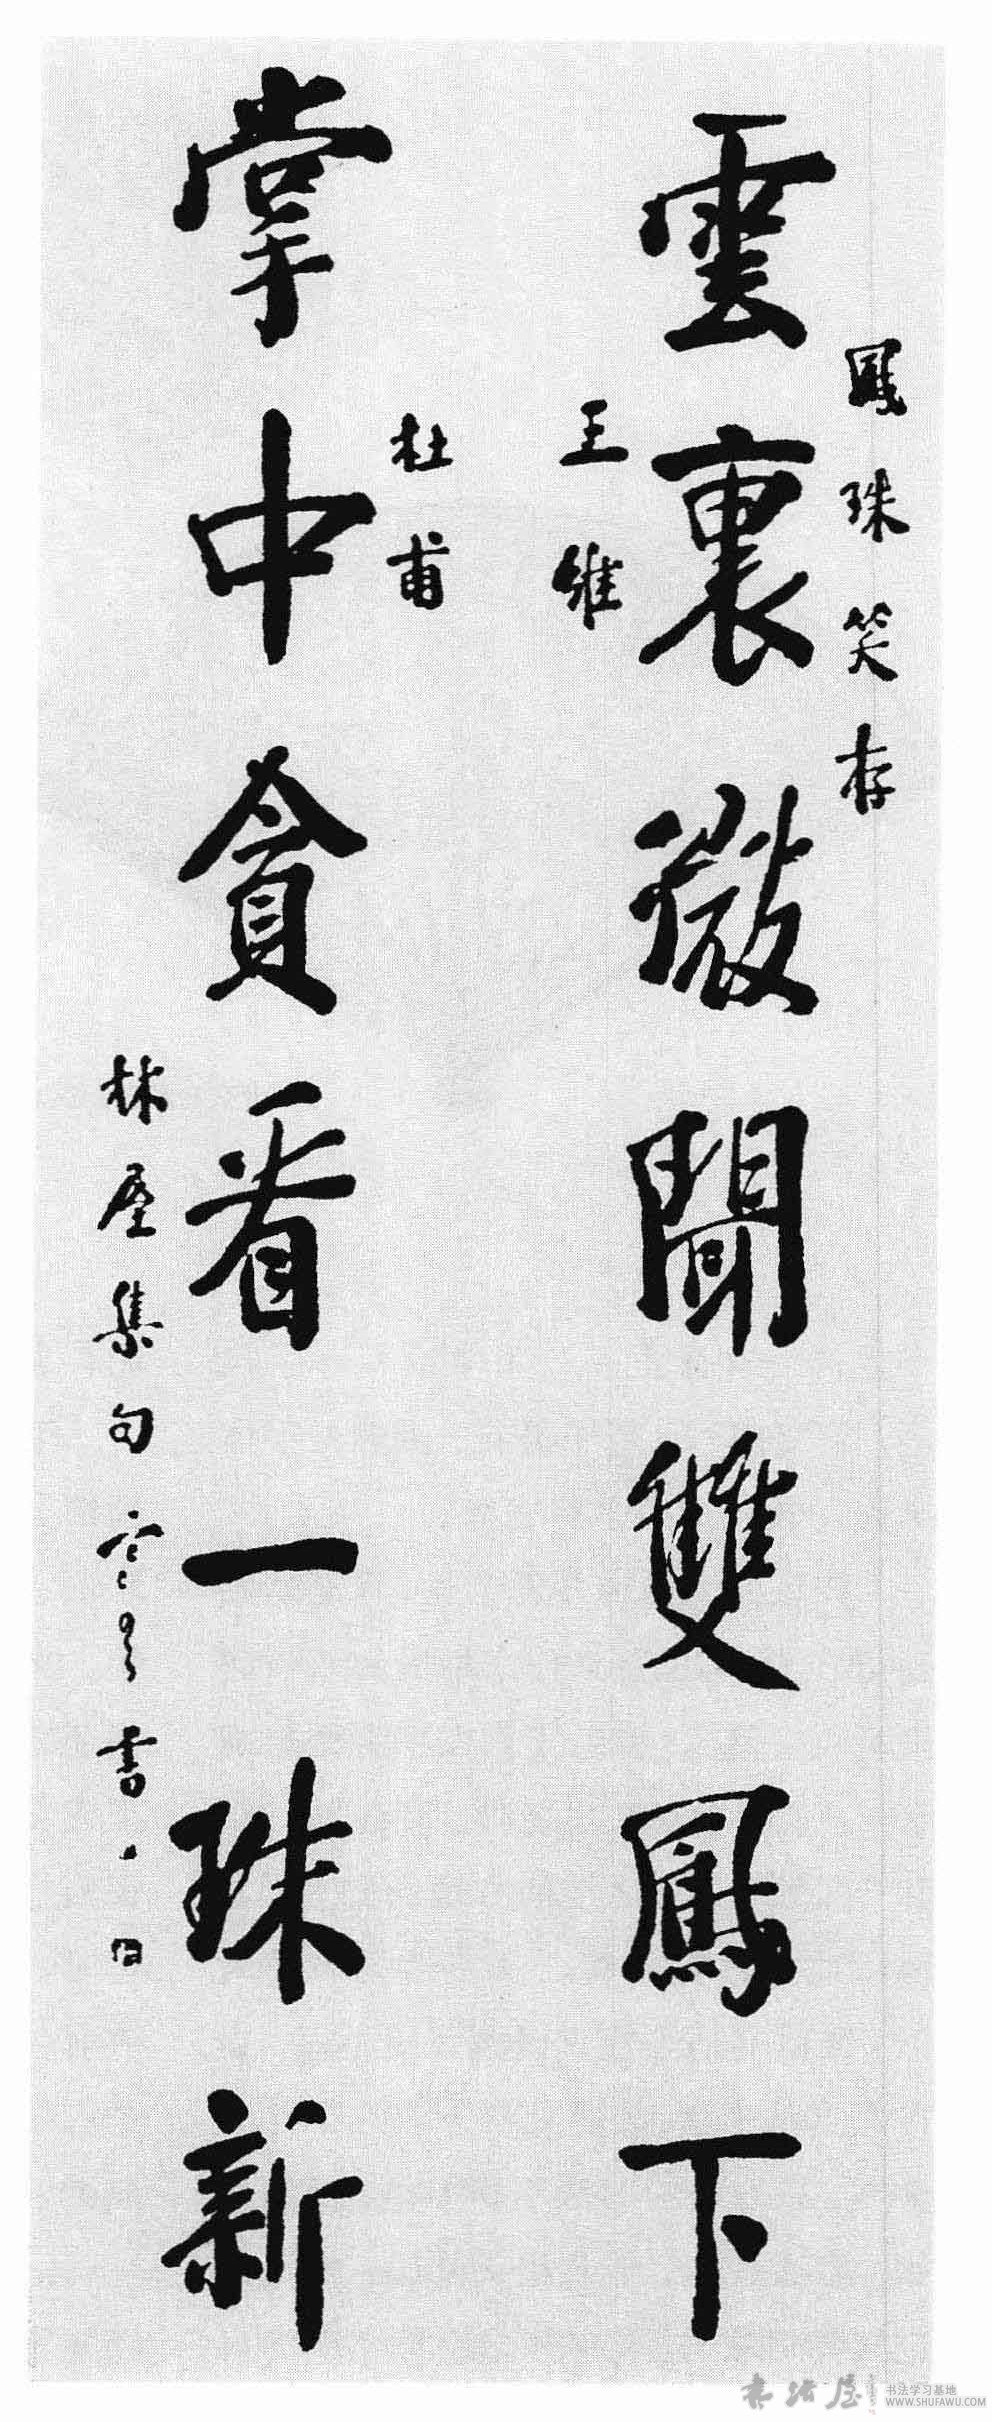 鳳珠笑存
雲裏微聞雙鳳下
王維
杜甫
掌中貪看一珠新
林屋集句 寒雲書
书法屋
书法学习基地
WWW.SHUFAWU.COM